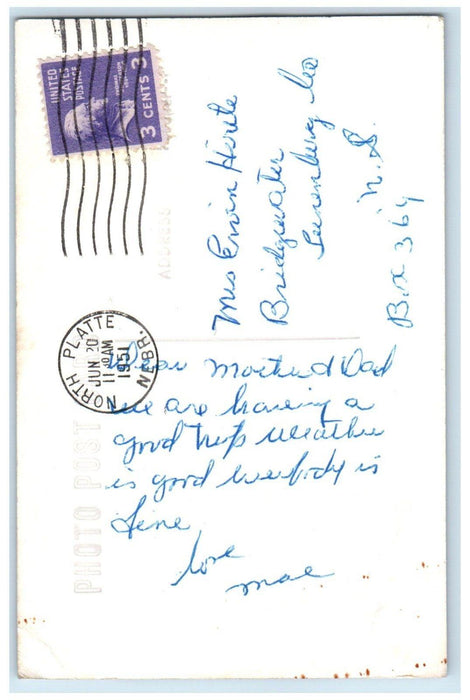 UNITED
STATES
POSTAGE
3 CENTS 3
NORTH PLATTE
JUN 20
11 30 AM
1951
NEBR.
ADDRESS
PHOTO POST
Mrs Ervin Hirtle
Bridgewater
Lunenburg Co
N.S.
Box 364
Dear Mother & Dad
we are having a
good trip weather
is good everybody is
fine
love
Mae